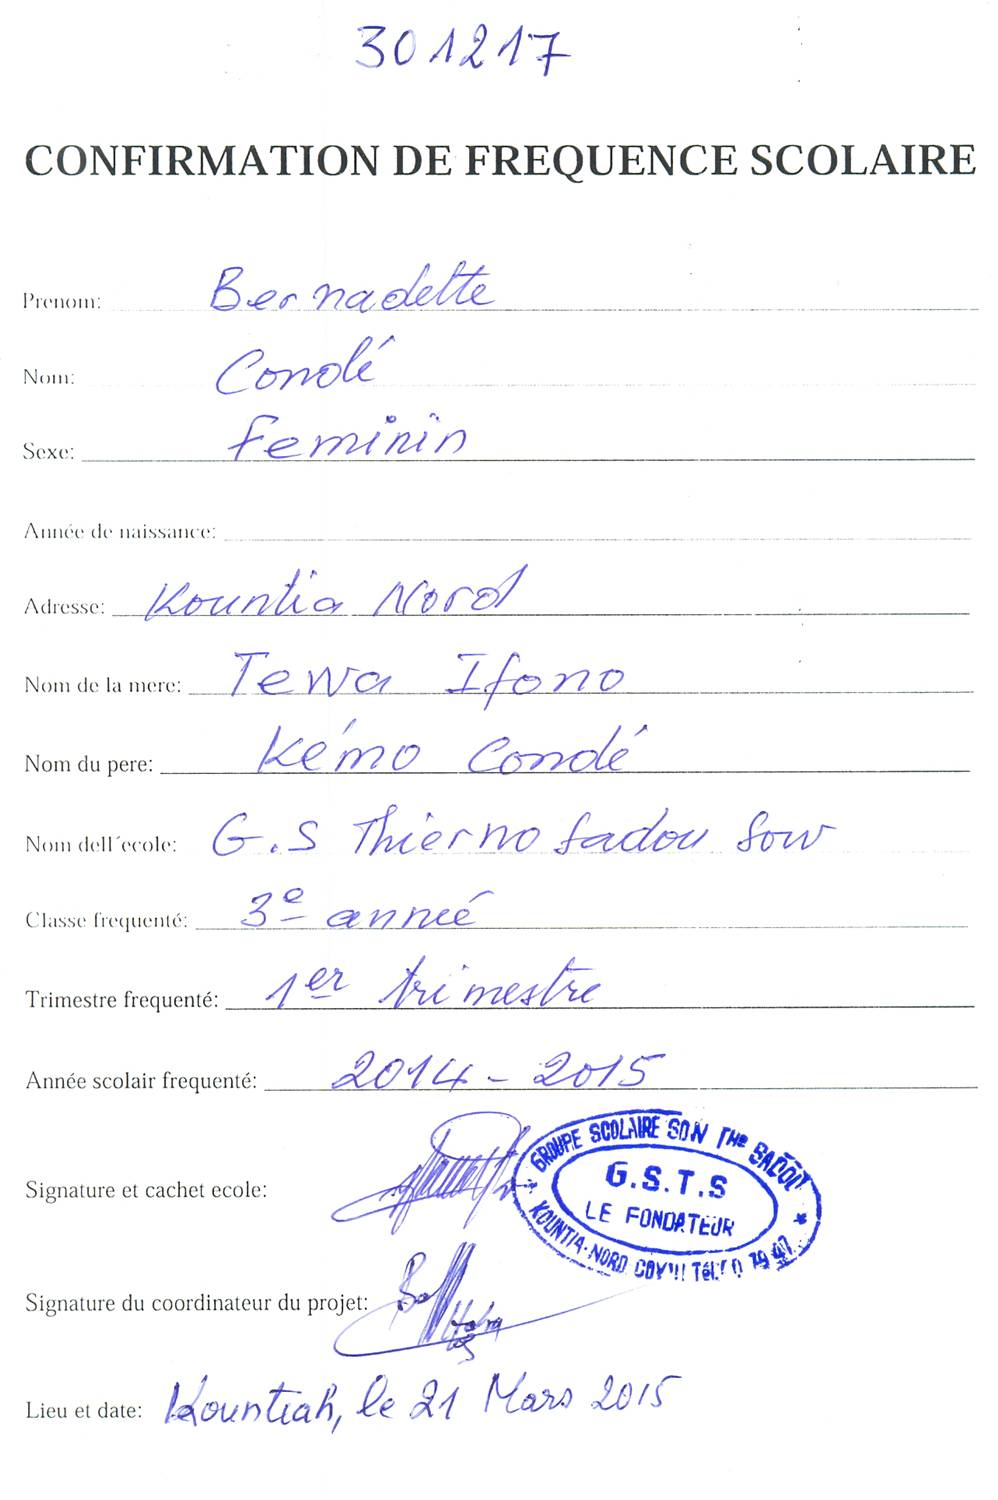 301217
CONFIRMATION DE FREQUENCE SCOLAIRE
Prenom: Bernadette
Nom: Condé
Sexe: Feminin
Année de naissance:
Adresse: Kountia Nord
Nom de la mere: Tewa Ifono
Nom du pere: Kémo Condé
Nom dell´ecole: G.S Thierno Sadou Sow
Classe frequenté: 3e anneé
Trimestre frequenté: 1er trimestre
Année scolair frequenté: 2014-2015
Signature et cachet ecole:
GROUPE SCOLAIRE SOW THe SADOU
G.S.T.S
LE FONDATEUR
KOUNTIA-NORD Tél.
Signature du coordinateur du projet:
Lieu et date: Kountiah, le 21 Mars 2015